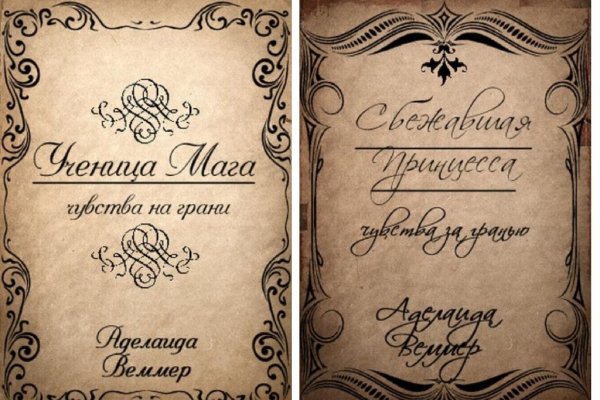 Ученица Мага
чувства на грани
Аделаида
Веммер
Сбежавшая
Принцесса
чувства за гранью
Аделаида
Веммер